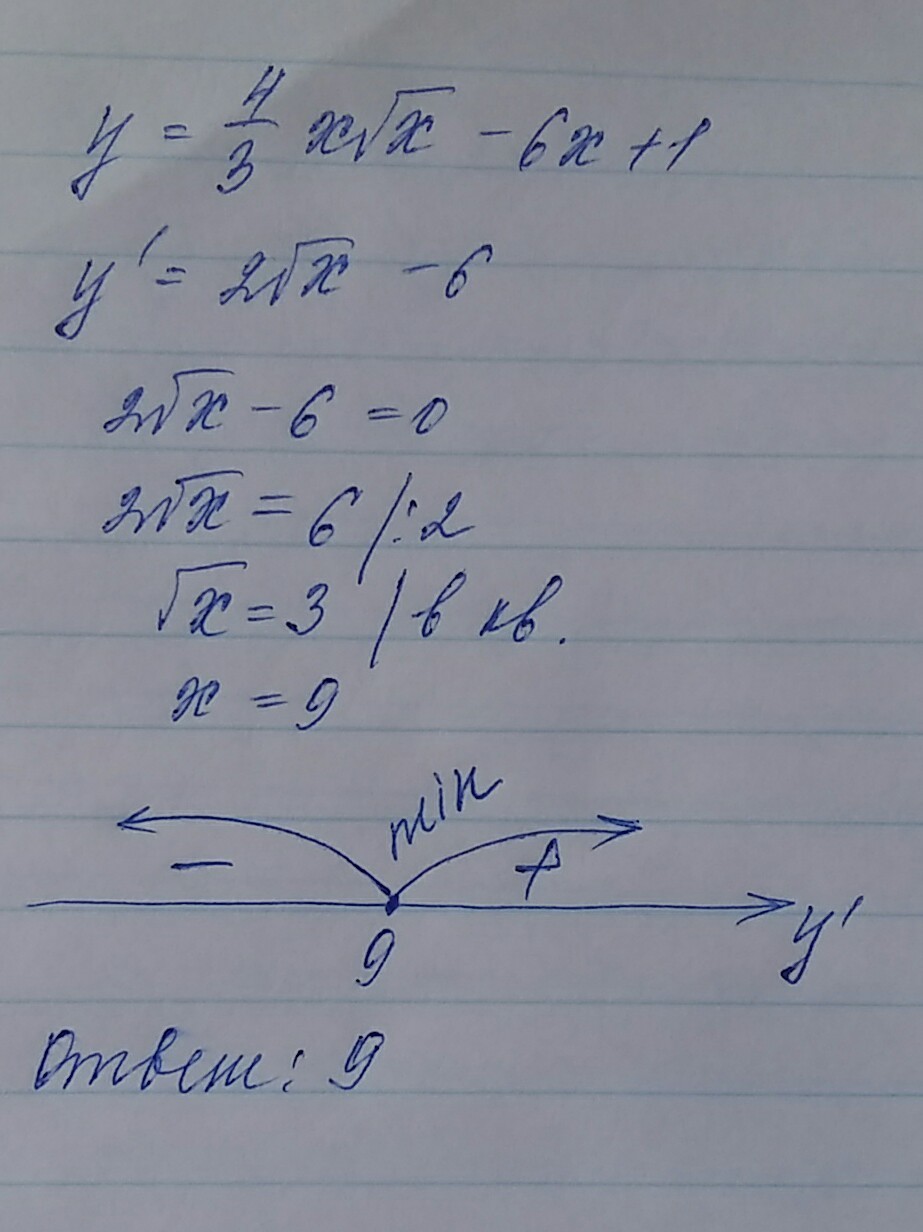 y = 4/3 x√x - 6x + 1
y' = 2√x - 6
2√x - 6 = 0
2√x = 6 /:2
√x = 3 / в кв.
x = 9
min
- +
9 y'
Ответ: 9